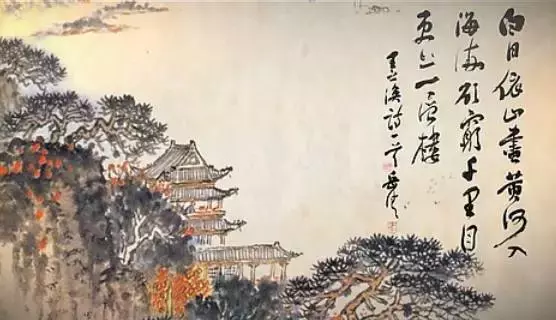 白日依山盡黄河入
海流欲窮千里目
更上一层樓
王之涣詩一首